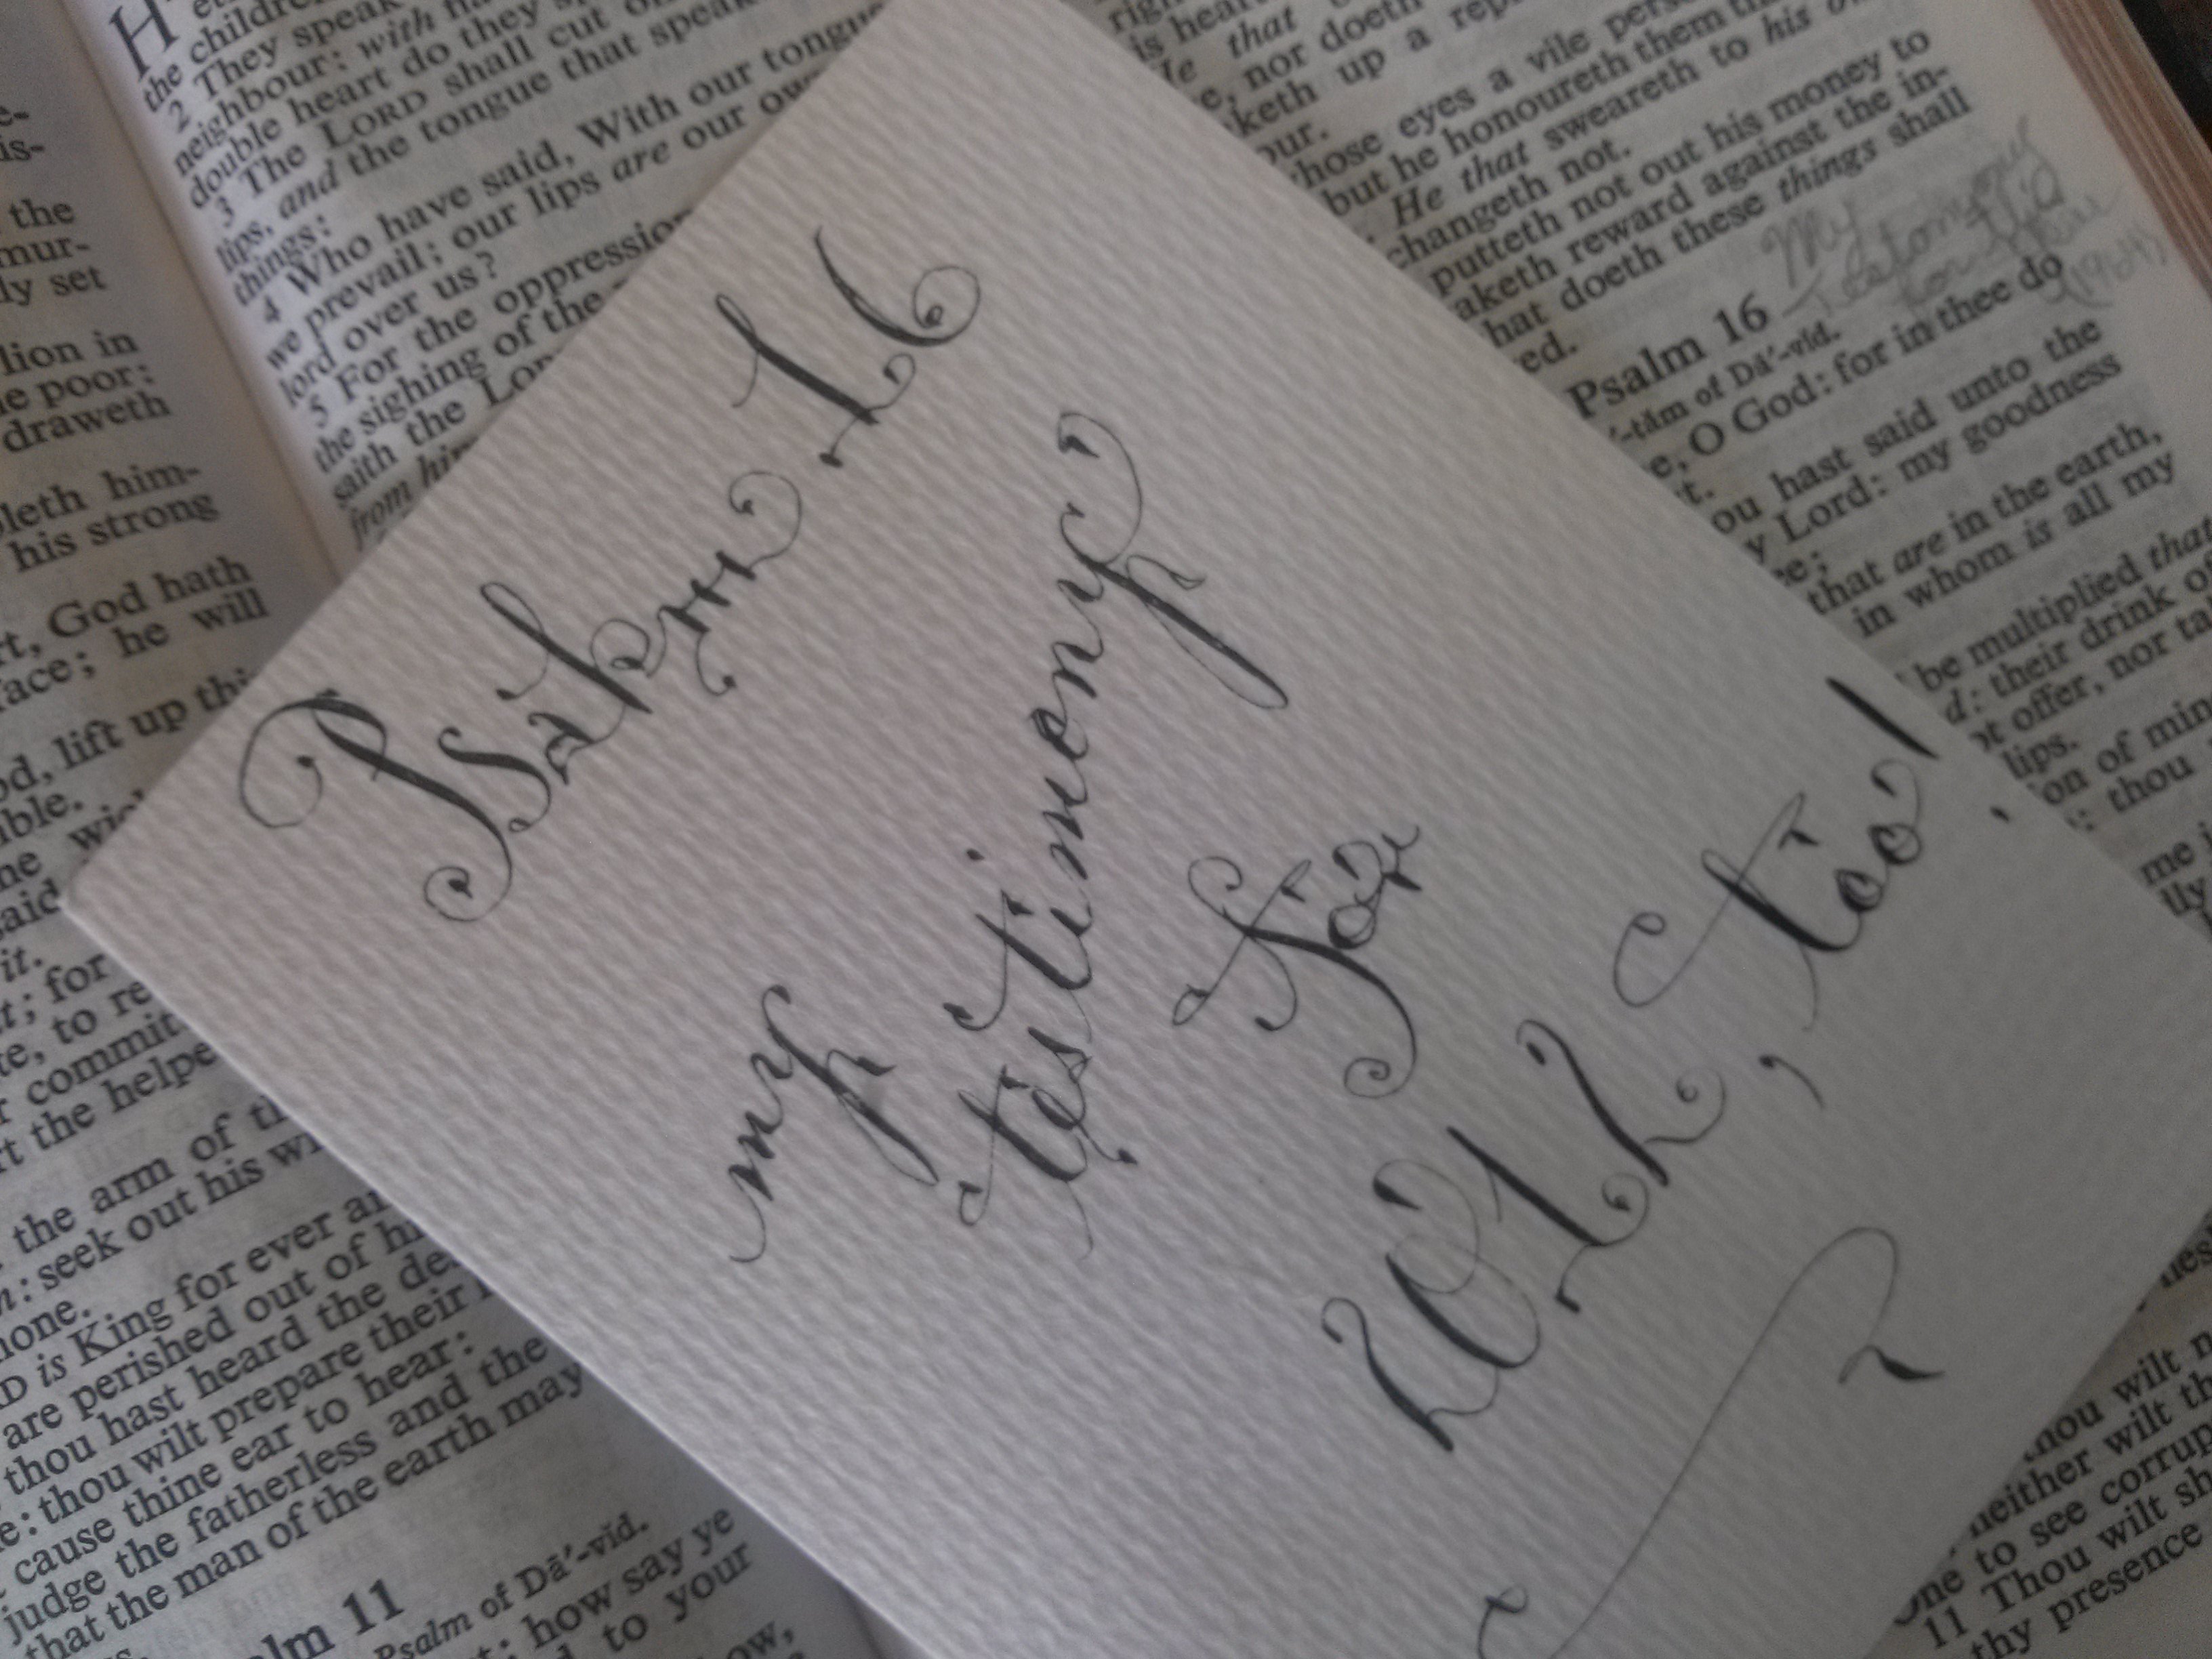 H
the children
2 They speak
neighbour: with
double heart do they
3 The LORD shall cut
lips, and the tongue that speak
things:
4 Who have said, With our tongue
we prevail; our lips are our ow
lord over us?
5 For the oppression
the sighing of the
saith the LOR
from him
the
mur-
ly set
lion in
e poor:
draweth
him-
his strong
rt, God hath
face; he will
od, lift up thi
ible.
said
it.
t; for
te, to re
commit
rt the helpe
the arm of
: seek out his wi
none.
D is King for ever
are perished out of hi
thou hast heard the de
e: thou wilt prepare their
cause thine ear to hear:
judge the fatherless and the
that the man of the earth may
alm 11
Psalm of Dā'-vĭd.
t: how say ye
to your
Psalm 16
my testimony
for
2012, too!
is hear
He that
e, nor doeth
keth up a rep
our.
hose eyes a vile pers
but he honoureth them th
He that sweareth to his
changeth not.
putteth not out his money to
aketh reward against the in-
hat doeth these things shall
ed.
My
testimony
for this
year
(1984)
Psalm 16
-tăm of Dā'-vĭd.
e, O God: for in thee do
t.
ou hast said unto the
y Lord: my goodness
ee;
that are in the earth,
in whom is all my
be multiplied that
d: their drink of
ot offer, nor ta
lips.
on of min
: thou
me
lly
thou wilt n
neither wilt th
One to see corrup
11 Thou wilt sh
thy presence